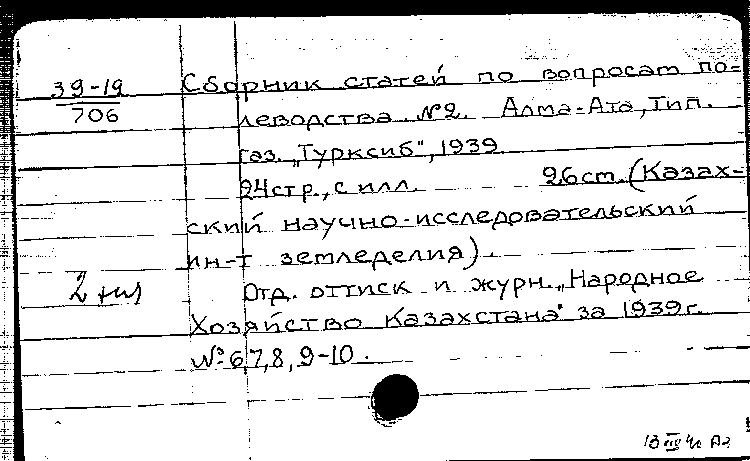 39-19
706
Сборник статей по вопросам по=
леводства №2. Алма-Ата, Тип.
газ. „Турксиб", 1939
24стр., с илл. 26см. (Казах-
ский научно-исследовательский
ин-т земледелия).
2
Отд. оттиск и журн. „Народное
Хозяйство Казахстана" за 1939г.
№ 6,7,8,9-10.